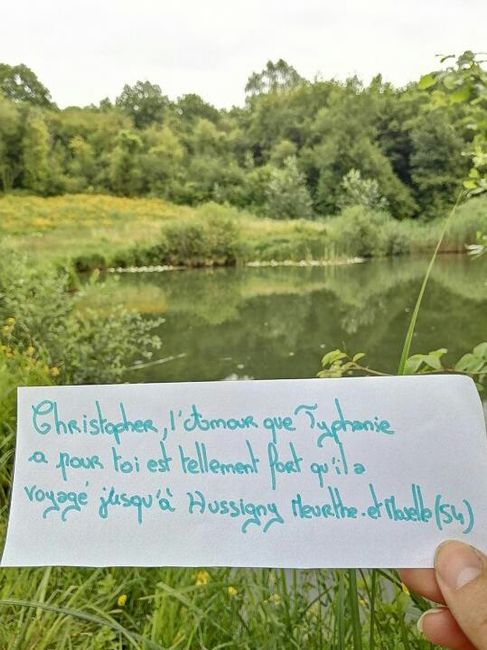 Christopher, l'Amour que Typhanie
a pour toi est tellement fort qu'il a
voyagé jusqu'à Hussigny Meurthe-et-Moselle (54)